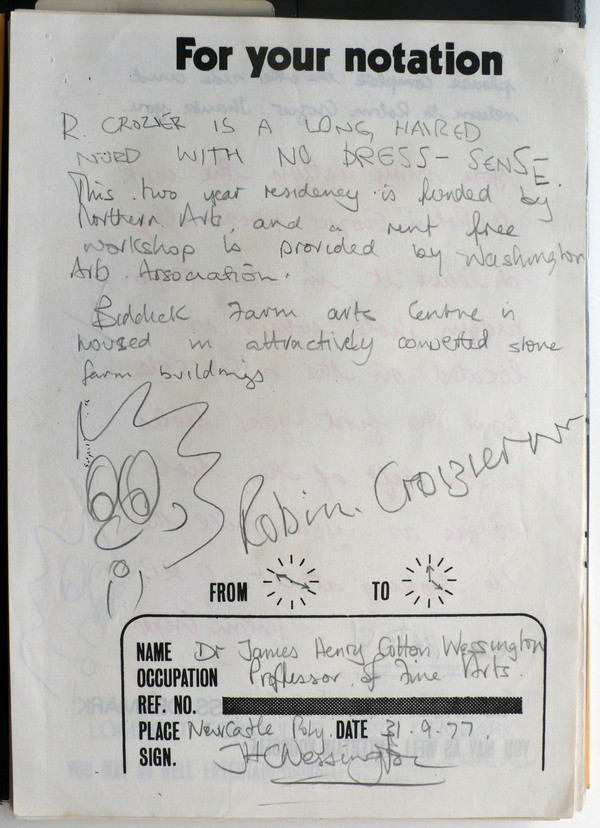 For your notation
R. CROZIER IS A LONG HAIRED
NURD WITH NO DRESS-SENSE.
This two year residency is funded by
Northern Arts, and a rent free
workshop is provided by Washington
Arts Association.
Biddick Farm arts Centre is
housed in attractively converted stone
farm buildings
Robin Crozier
FROM TO
NAME Dr James Henry Cotton Wessington
OCCUPATION Proffessor of Fine Arts.
REF. NO.
PLACE Newcastle Poly. DATE 31.9.77.
SIGN. JHCWessington